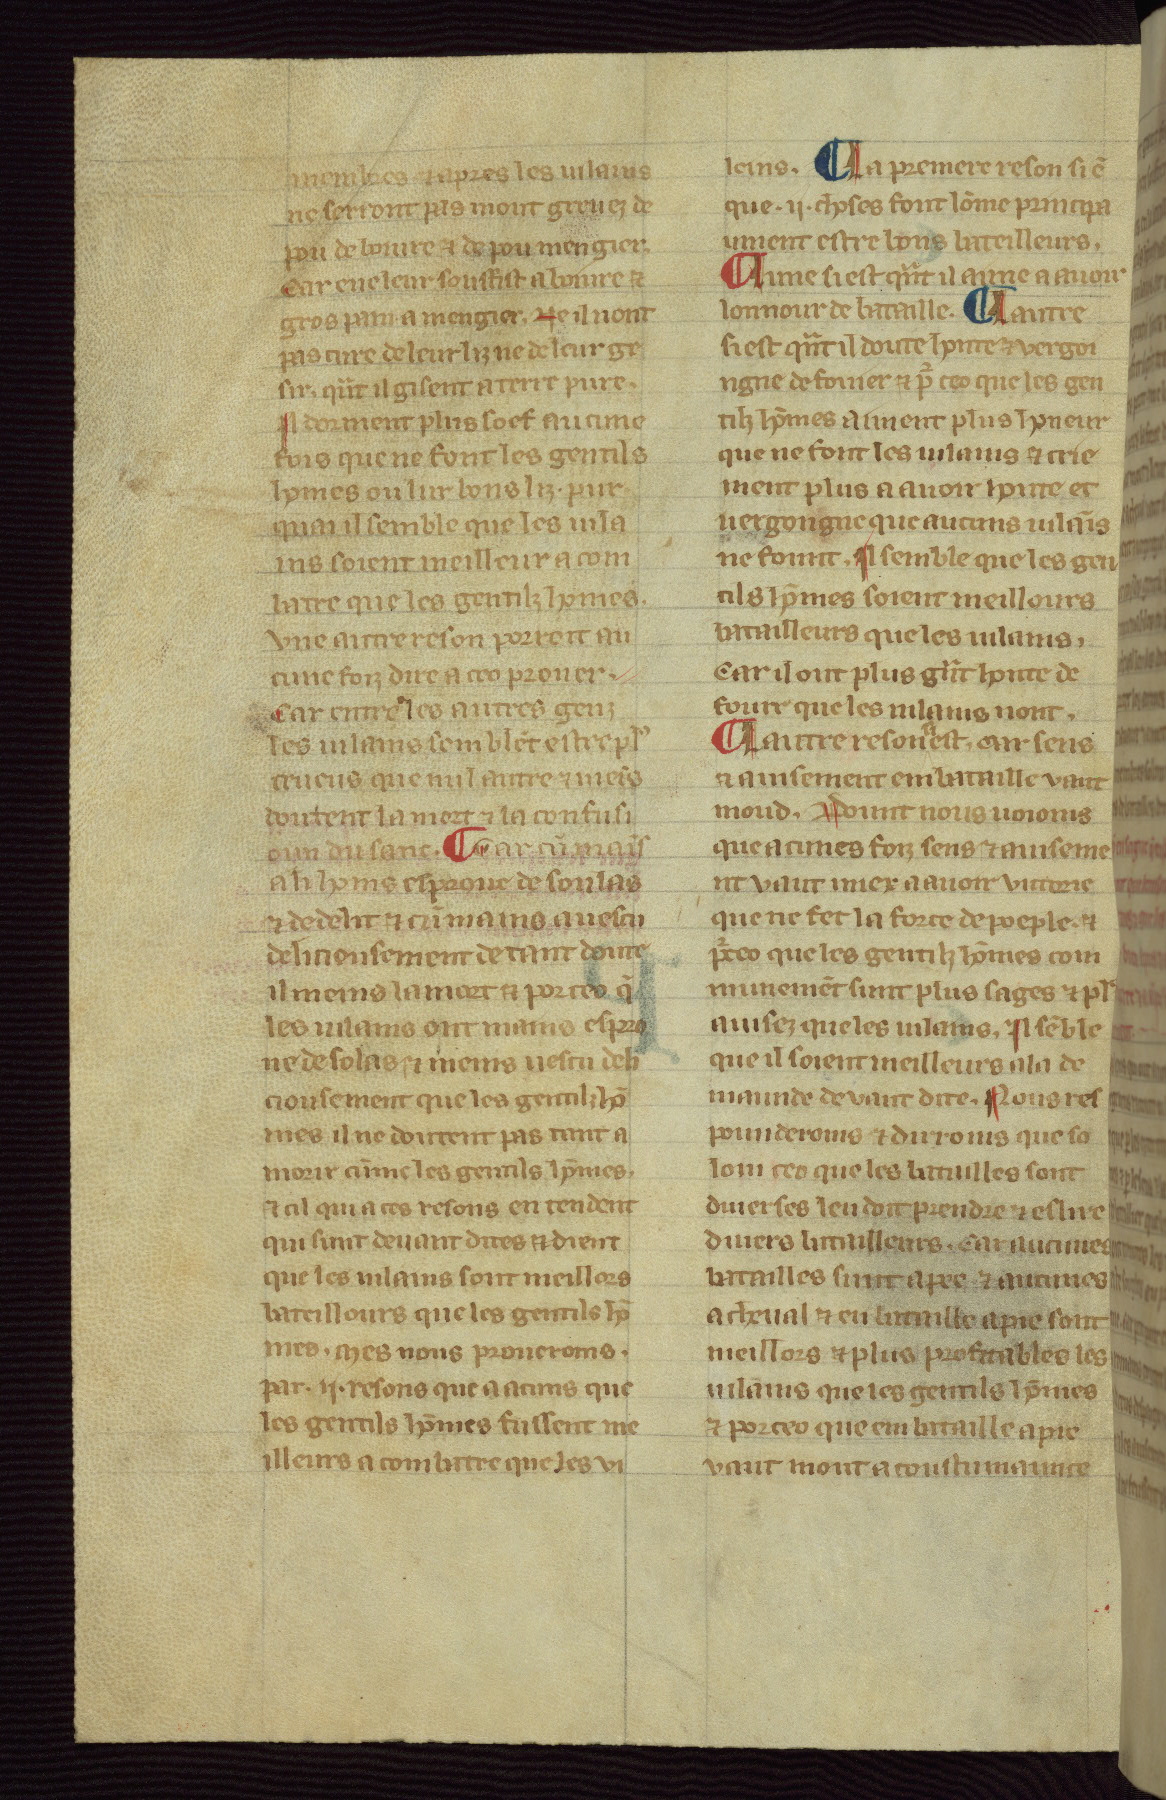 membres ⁊ apres les uilains
ne serront pas mout greuez de
pou de boiure ⁊ de pou mengier.
Car eue leur souffist a boiure ⁊
gros pain a mengier. Ne il nont
pas cure de leur liz ne de leur ge
sir. qu̅t il gisent a terre pure.
Il dorment plus soef aucune
fois que ne font les gentils
homes ou lur bons liz. pur
quai il semble que les uila
ins soient meilleur a com
batre que les gentilz homes.
Vne autre reson porreit au
cune foiz dire a ceo prouer.
Car entre les autres genz
les uilains semble̅t estre pl9
crueus que nul autre ⁊ meis
doutent la mort ⁊ la confusi
oun du sanc. ¶ Car cu̅ mais
ali homs esproue de soulas
⁊ de delit ⁊ cu̅ mains auescu
deliciousement de tant doute
il meins la mort ⁊ por ceo q̅
les uilains ont mains espro
ue de solas ⁊ meins uescu deli
ciousement que les gentilz ho̅
mes il ne doutent pas tant a
morir cu̅me les gentils ho̅mes.
⁊ cil qui a ces resons entendent
qui sunt deuant dites ⁊ dient
que les uilains sont meillors
bateillours que les gentils ho̅
mes. Mes nous prouerons.
par .ij. resons que a acuns que
les gentils ho̅mes fussent me
illeurs a combatre que les vi
leins. ¶ La premere reson si e̅
que .ij. choses font lo̅me principa
ument estre bons bateilleurs.
¶ Lune si est qu̅t il aime a auoir
lonnour de bataille. ¶ Lautre
si est qu̅t il doute honte ⁊ vergoi
ngne de fouier ⁊ p̅ ceo que les gen
tilz ho̅mes aiment plus honeur
que ne font les uilains ⁊ crie
ment plus a auoir honte et
uergongne que aucuns uilai̅s
ne fount. Il semble que les gen
tils ho̅mes soient meillours
batailleurs que les uilains.
Car il ont plus gra̅t honte de
fouir que les uilains nont.
¶ Lautre reson est. car sens
⁊ auisement em bataille vaut
moud. Dount nous uoioms
que acunes foiz sens ⁊ auiseme
nt vaut miex a auoir victorie
que ne fet la force de poeple. ⁊
p̅ceo que les gentilz ho̅mes com
muneme̅t sunt plus sages ⁊ pl9
auisez que les uilains. Il se̅ble
que il soient meilleurs a la de
maunde deuant dite. Nous res
pounderoms ⁊ dirroms que so
lom ceo que les batailles sont
diuerses leu doit prendre ⁊ eslire
diuers batailleurs. Car aucunes
batailles sunt a pee ⁊ aucunes
a cheual ⁊ en bataille a pie sont
meillors ⁊ plus profitables les
uilains que les gentils ho̅mes
⁊ por ceo que em bataille a pie
vaut mout acoustumaunce